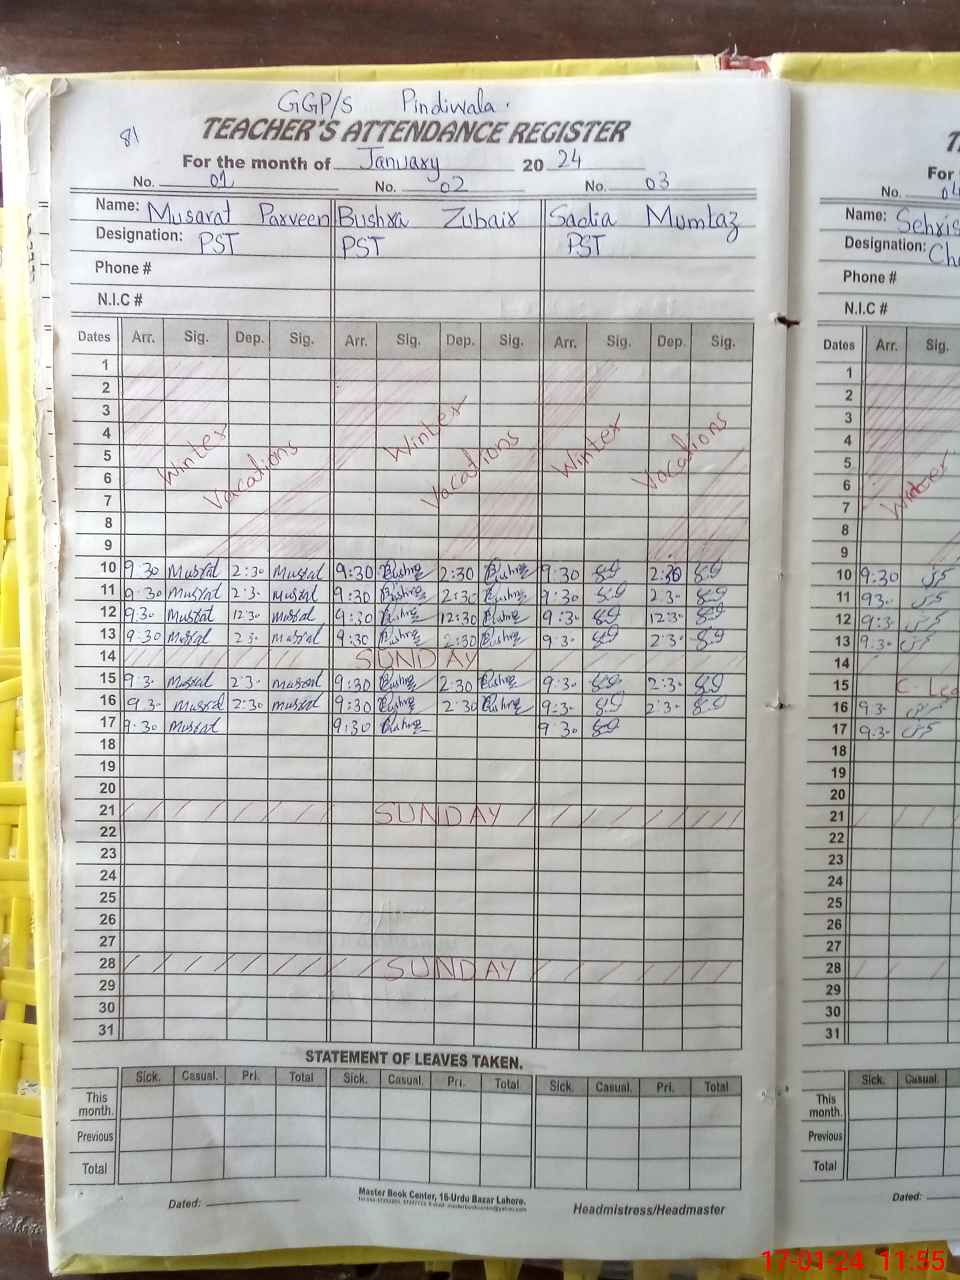 GGP/S Pindiwala.
81
TEACHER'S ATTENDANCE REGISTER
For the month of January 2024
No. 01 No. 02 No. 03
Name: Musarat Parveen Bushra Zubair Sadia Mumtaz
Designation: PST PST PST
Phone #
N.I.C #
Dates Arr. Sig. Dep. Sig. Arr. Sig. Dep. Sig. Arr. Sig. Dep. Sig.
1
2
3
4
5
6
7
8
9
Winter Vacations Winter Vacations Winter Vacations
10 9:30 Musrat 2:30 Musrat 9:30 Bushra 2:30 Bushra 9:30 2:30
11 9:30 Musrat 2:3- Musrat 9:30 Bushra 2:30 Bushra 9:30 2:3-
12 9:3- Musrat 12:3- Musrat 9:30 Bushra 12:30 Bushra 9:3- 12:3-
13 9:30 Musrat 2:3- Musrat 9:30 Bushra 2:30 Bushra 9:3- 2:3-
14 SUNDAY
15 9:3- Musrat 2:3- Musrat 9:30 Bushra 2:30 Bushra 9:3- 2:3-
16 9:3- Musrat 2:30 Musrat 9:30 Bushra 2:30 Bushra 9:3- 2:3-
17 9:30 Musrat 9:30 Bushra 9:30
18
19
20
21 SUNDAY
22
23
24
25
26
27
28 SUNDAY
29
30
31
STATEMENT OF LEAVES TAKEN.
Sick. Casual. Pri. Total Sick. Casual. Pri. Total Sick. Casual. Pri. Total
This month.
Previous
Total
Dated:
Master Book Center, 16-Urdu Bazar Lahore.
Headmistress/Headmaster
For
No. 04
Name: Sehris
Designation: Ch
Phone #
N.I.C #
Dates Arr. Sig.
1
2
3
4
5
6
7
8
9
Winter
10 9:30
11 93-
12 9:3-
13 9:3-
14
15 C. Lea
16 93-
17 9:3-
18
19
20
21
22
23
24
25
26
27
28
29
30
31
Sick. Casual.
This month.
Previous
Total
Dated:
17-01-24 11:55